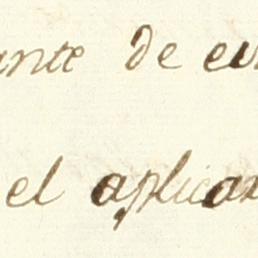 ante de eu
el aplicar